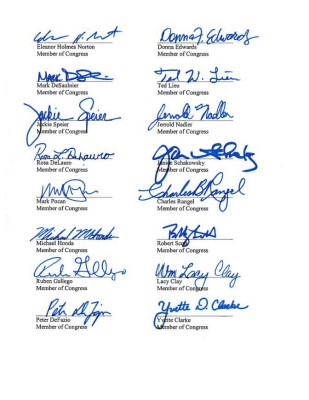 Eleanor Holmes Norton
Member of Congress
Donna F. Edwards
Donna Edwards
Member of Congress
Mark DeSaulnier
Member of Congress
Ted W. Lieu
Ted Lieu
Member of Congress
Jackie Speier
Jackie Speier
Member of Congress
Jerrold Nadler
Jerrold Nadler
Member of Congress
Rosa L. DeLauro
Rosa DeLauro
Member of Congress
Jan Schakowsky
Janice Schakowsky
Member of Congress
Mark Pocan
Member of Congress
Charles B. Rangel
Charles Rangel
Member of Congress
Michael M. Honda
Michael Honda
Member of Congress
Robert Scott
Member of Congress
Ruben Gallego
Ruben Gallego
Member of Congress
Wm Lacy Clay
Lacy Clay
Member of Congress
Peter DeFazio
Peter DeFazio
Member of Congress
Yvette D. Clarke
Yvette Clarke
Member of Congress